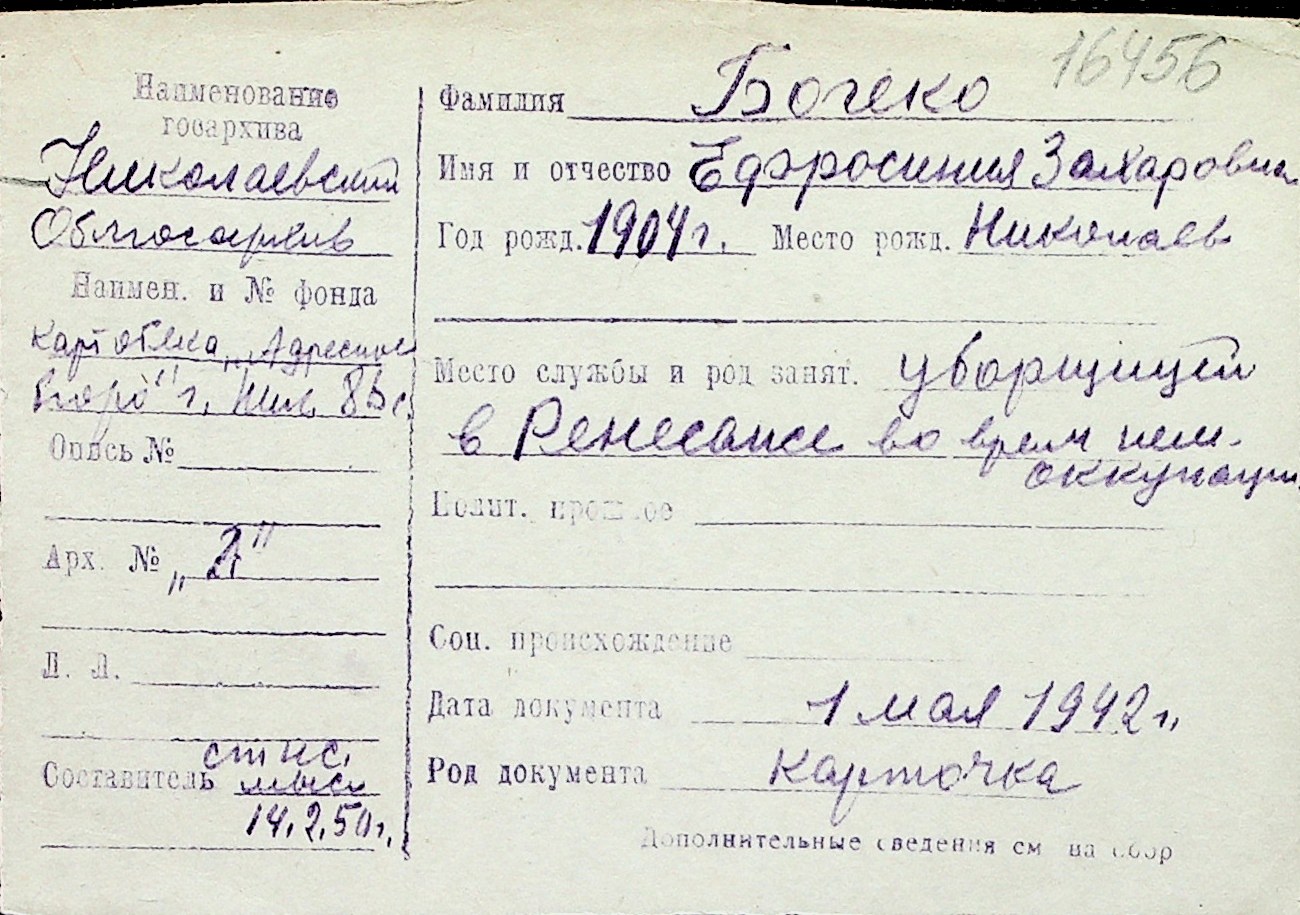 16456
Наименование
госархива
Николаевский
Облгосархив
Наимен. и № фонда
Картотека „Адресное
бюро" г. Ник.
Опись №
Арх. № „2"
Л. Л.
Составитель ст. н.с.
14.2.50г.
Фамилия Богеко
Имя и отчество Ефросиния Захаровна
Год рожд. 1904г. Место рожд. Николаев
Место службы и род занят. уборщицей
в Ренесансе во врем нем.
оккупации
Полит. прошлое
Соц. происхождение
Дата документа 1 мая 1942г.
Род документа карточка
Дополнительные сведения см на обор